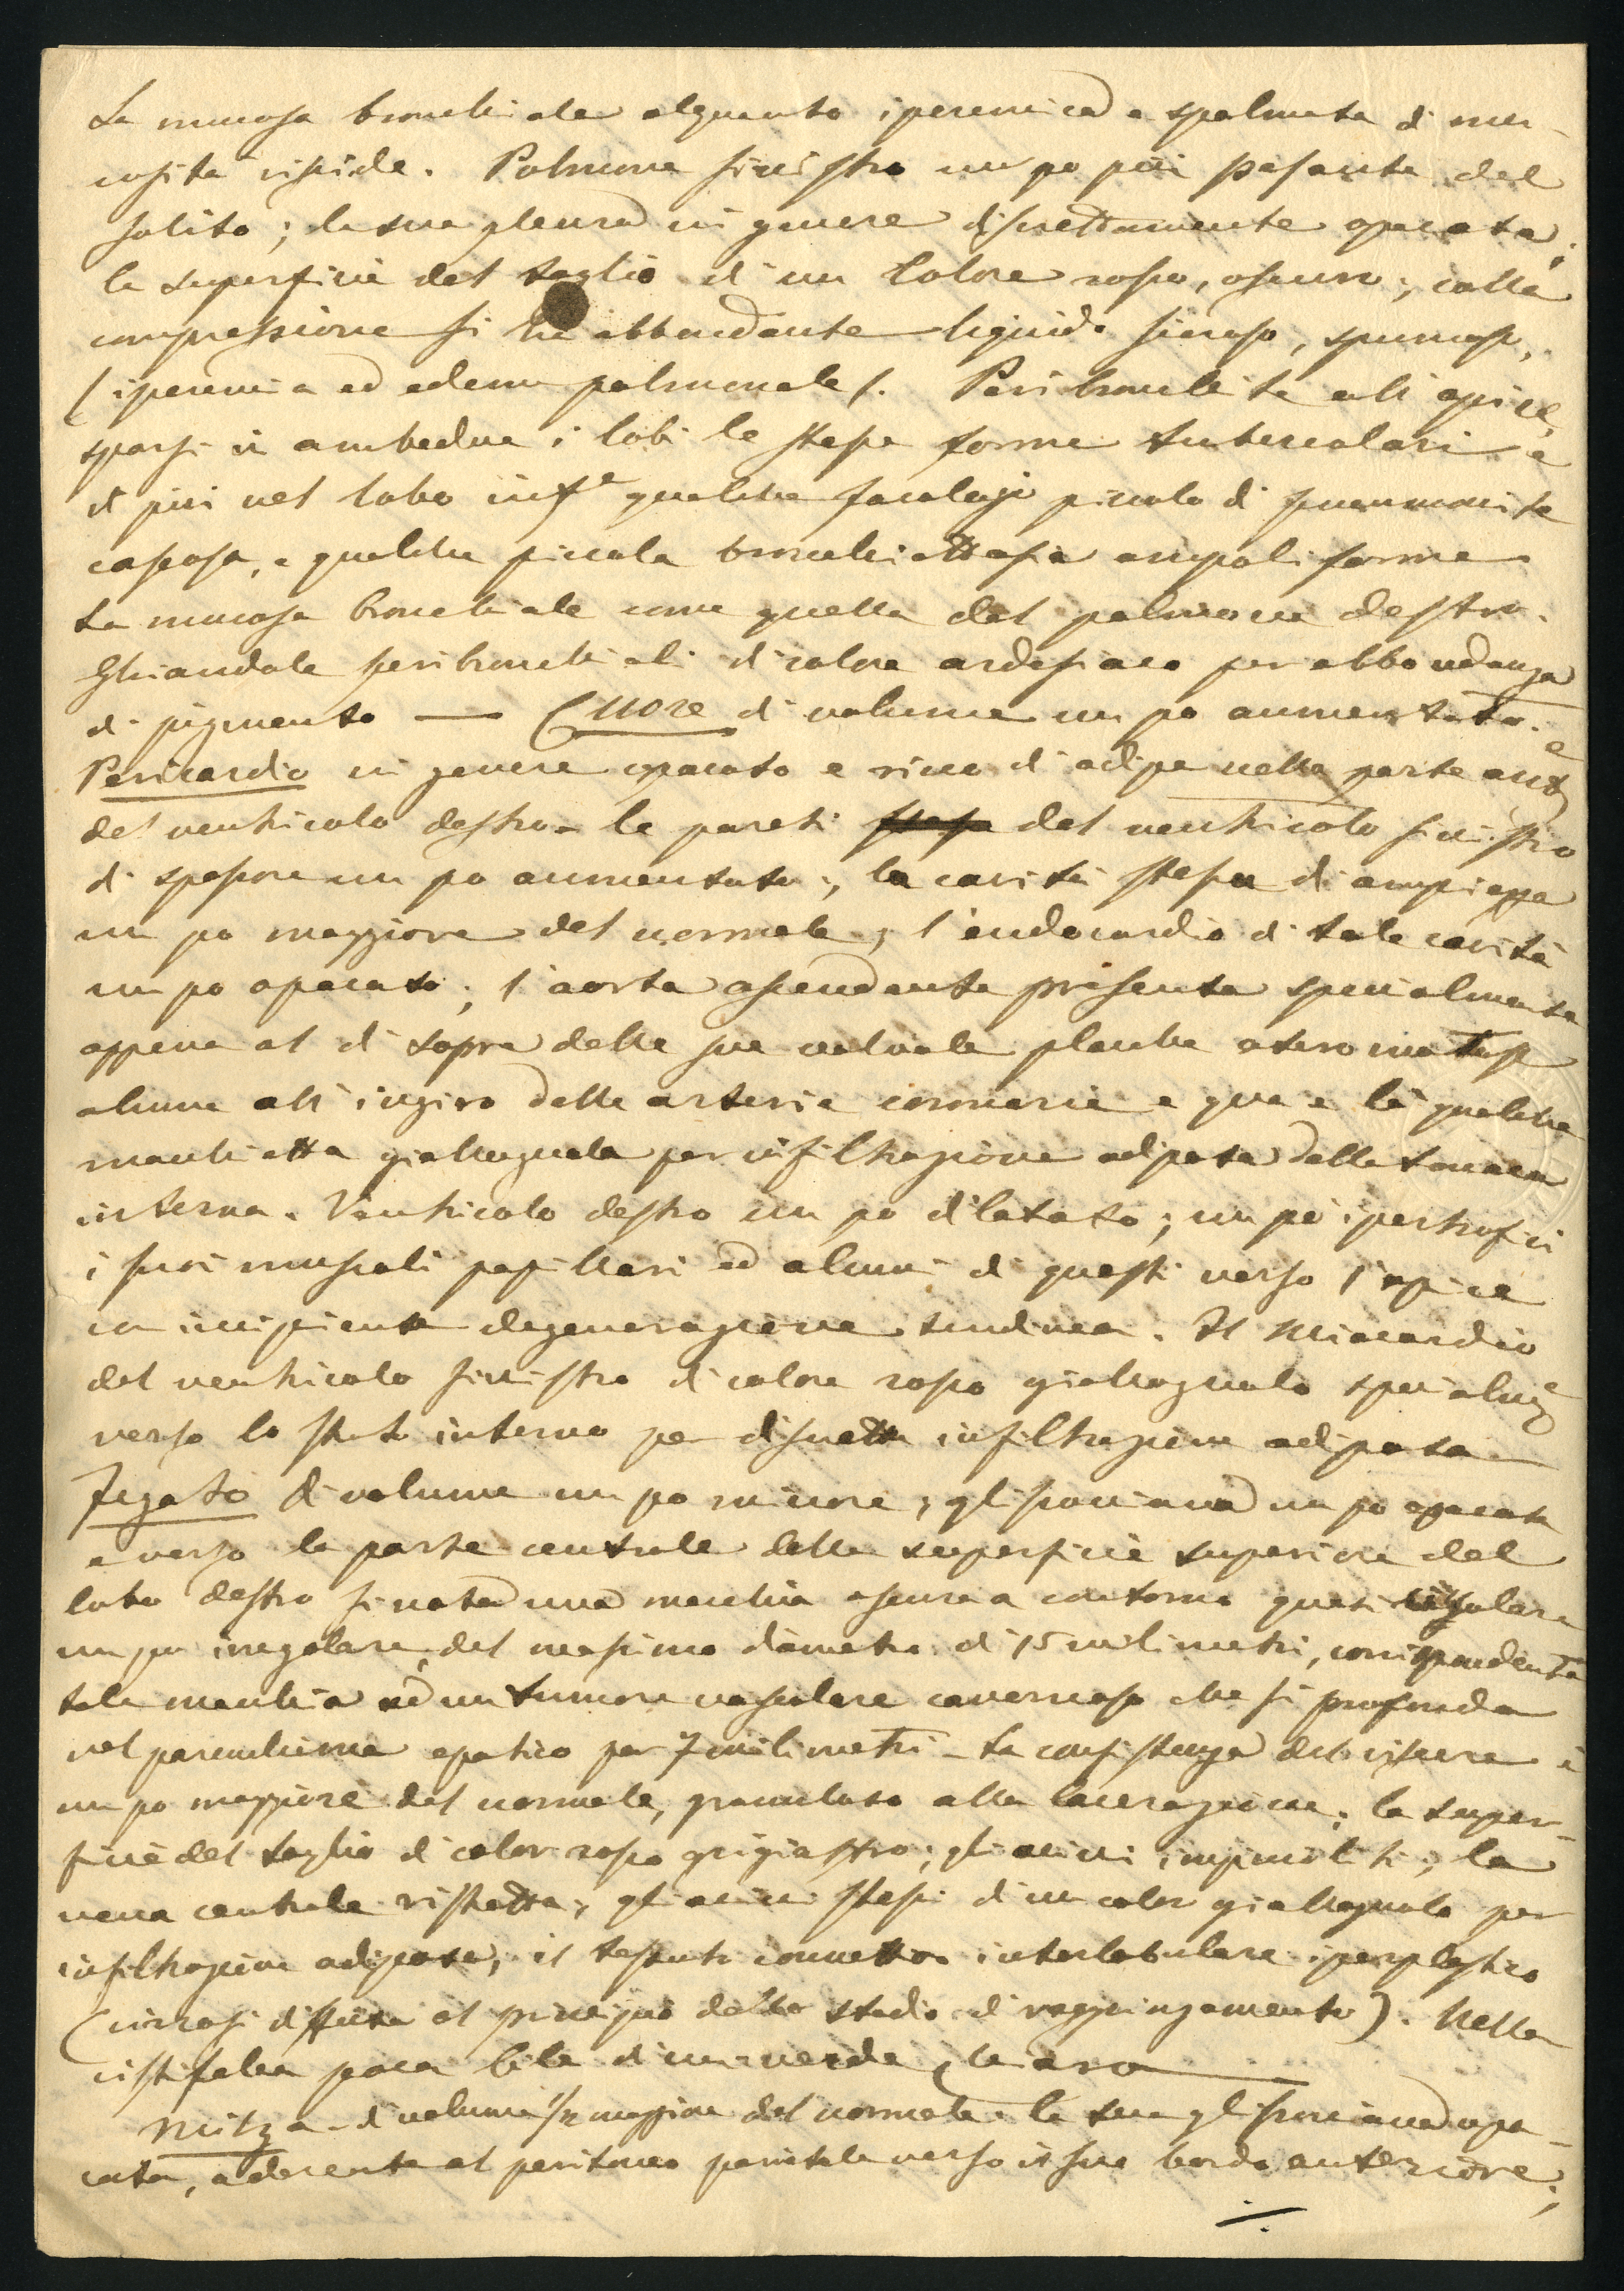 La mucosa bronchiale alquanto iperemica e spalmata di mu-
cosità viscide. Polmone sinistro un po più pesante del
solito; la sua pleura in genere discrettamente opacata;
la superficie del taglio d'un colore rosso, oscuro; colla
compressione si ha abbondante liquido sieroso, spumoso,
(iperemia ed edema polmonale). Peribronchite all'apice,
sparsi in ambedue i lobi le stesse forme tubercolari e
di più nel lobo infe qualche focolajo piccolo di pneumonite
caseosa, e qualche piccola bronchiettasia ampoliforme
La mucosa bronchiale come quella del polmone destro.
Ghiandole peribronchiali di colore ardesiaco per abbondanza
di pigmento — Cuore di volume un po aumentato.
Pericardio in genere opacato e ricco di adipe nella parte ante
del ventricolo destro. le pareti del ventricolo sinistro
di spessore un po aumentato; la cavità stessa di ampiezza
un po maggiore del normale; l'endocardio di tale cavità
un po opacato; l'aorta ascendente presenta specialmente
appena al di sopra delle sue valvole placche ateromatose
alcune all'ingiro delle arterie coronarie e qua e là qualche
macchietta giallognola per infiltrazione adiposa della tonaca
interna. Ventricolo destro un po dilatato; un po ipertrofici
i suoi muscoli papillari ed alcuni di questi verso l'apice
in incipiente degenerazione tendinea. Il Miocardio
del ventricolo sinistro di colore rosso giallognolo specialme
verso lo strato interno per discretta infiltrazione adiposa
Fegato di volume un po minore; glissoniana un po opacata
e verso la parte centrale della superficie superiore del
lobo destro si nota una macchia oscura a contorno quasi
un po irregolare, del massimo diametro di 15 milimetri, corrispondente
tale macchia ad un tumore vascolare cavernoso che si profonda
nel parenchima epatico per 7 milimetri – La consistenza del viscere è
un po maggiore del normale, granuloso alla lacerazione; la super-
ficie del taglio di color rosso grigiastro; gli acini impiccoliti; la
vena centrale ristretta; gli acini stessi d'un color giallognolo per
infiltrazione adiposa; il tessuto connettivo interlobulare iperplastico
(cirrosi diffusa al principio dello stadio di raggrinzamento). Nella
cistifelea poca bile d'un verde chiaro
Milza – di volume 1/2 maggiore del normale. la sua glissoniana opa-
cata, aderente al peritoneo parietale verso il suo bordo anteriore;